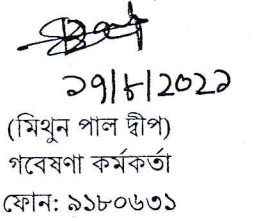 ২৭/৮/২০২২
(মিথুন পাল দ্বীপ)
গবেষণা কর্মকর্তা
ফোন: ৯১৮০৬৩১